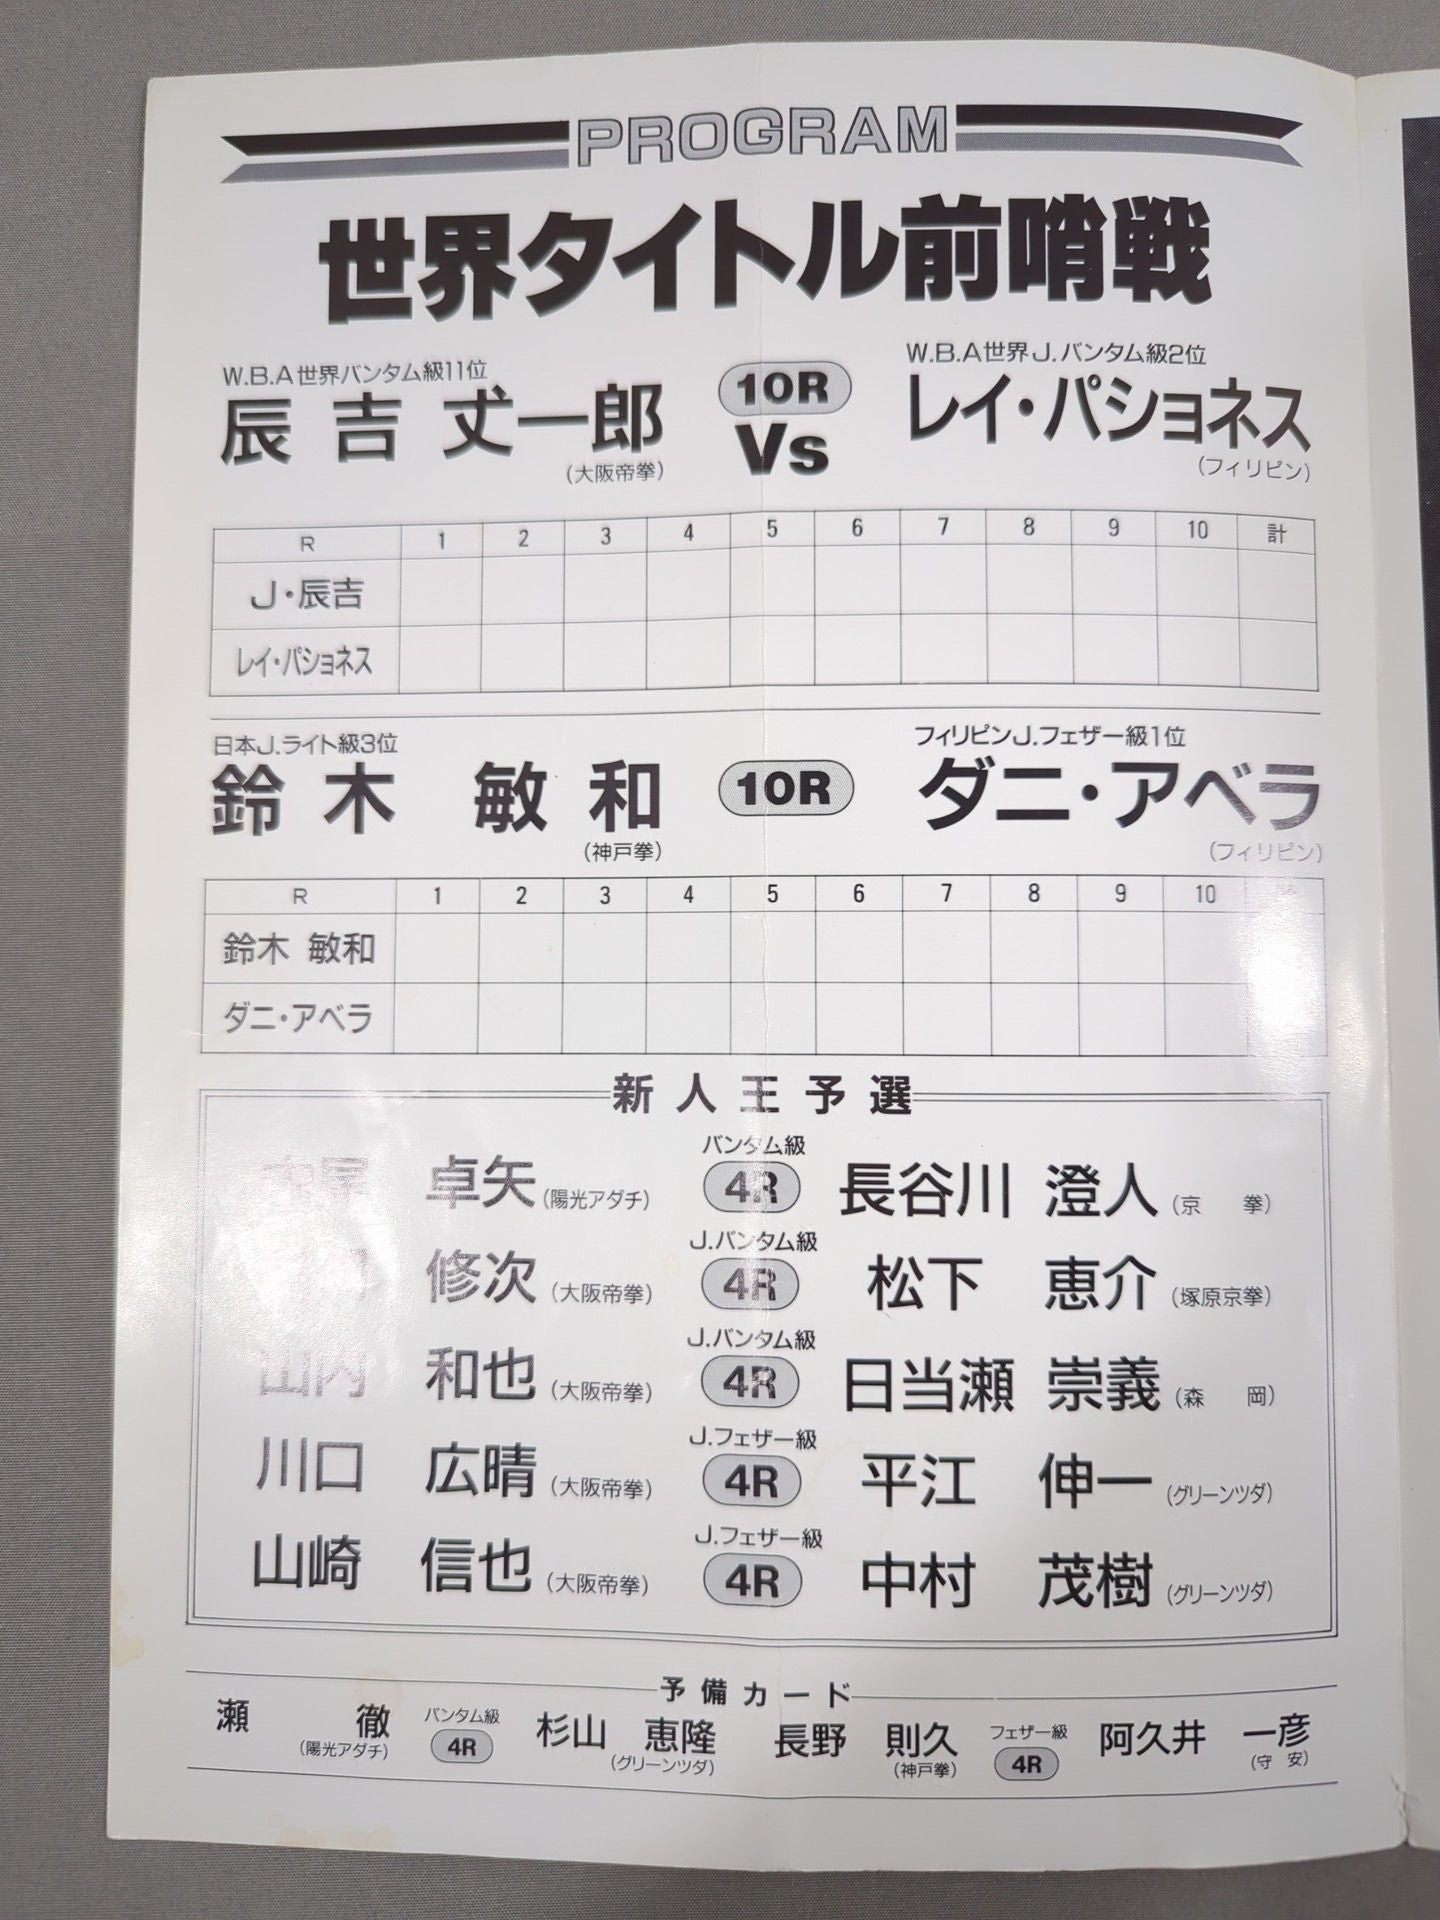 PROGRAM
世界タイトル前哨戦
W.B.A世界バンタム級11位
辰吉 丈一郎
(大阪帝拳)
10R
Vs
W.B.A世界J.バンタム級2位
レイ・パショネス
(フィリピン)
R 1 2 3 4 5 6 7 8 9 10 計
J・辰吉
レイ・パショネス
日本J.ライト級3位
鈴木 敏和
(神戸拳)
10R
フィリピンJ.フェザー級1位
ダニ・アベラ
(フィリピン)
R 1 2 3 4 5 6 7 8 9 10
鈴木 敏和
ダニ・アベラ
新人王予選
バンタム級
卓矢 (陽光アダチ) 4R 長谷川 澄人 (京 拳)
J.バンタム級
修次 (大阪帝拳) 4R 松下 恵介 (塚原京拳)
J.バンタム級
山内 和也 (大阪帝拳) 4R 日当瀬 崇義 (森 岡)
J.フェザー級
川口 広晴 (大阪帝拳) 4R 平江 伸一 (グリーンツダ)
J.フェザー級
山崎 信也 (大阪帝拳) 4R 中村 茂樹 (グリーンツダ)
予備カード
瀬 徹 (陽光アダチ) バンタム級 4R 杉山 恵隆 (グリーンツダ)
長野 則久 (神戸拳) フェザー級 4R 阿久井 一彦 (守 安)